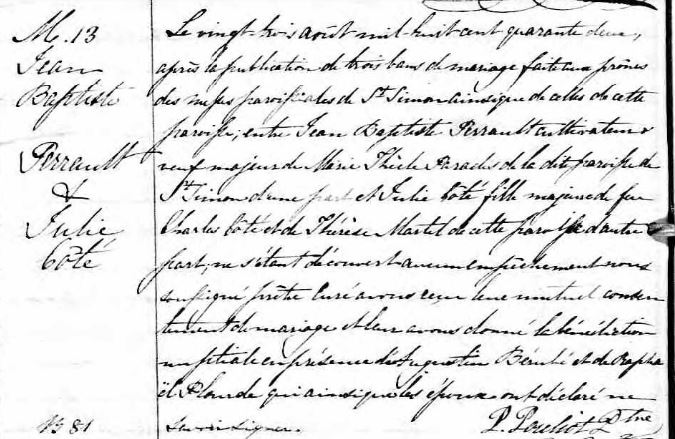 M. 13
Jean
Baptiste
Perrault
&
Julie
Côté
B 81
Le vingt-trois août mil huit cent quarante deux,
après la publication de trois bans de mariage faite aux prônes
des messes paroissiales de St Simon ainsi que de celles de cette
paroisse; entre Jean Baptiste Perrault cultivateur &
veuf majeur de Marie Thècle Paradis de la dite paroisse de
St Simon d'une part et Julie Côté fille majeure de feu
Charles Côté et de Thérèse Martel de cette paroisse d'autre
part; ne s'étant découvert aucun empêchement nous
soussigné prêtre Curé avons reçu leur mutuel consen
tement de mariage et leur avons donné la bénédiction
nuptiale en présence d'Augustin Bérubé et de Rapha
ël Plourde qui ainsi que les époux ont déclaré ne
savoir signer.
P. Pouliot Ptre